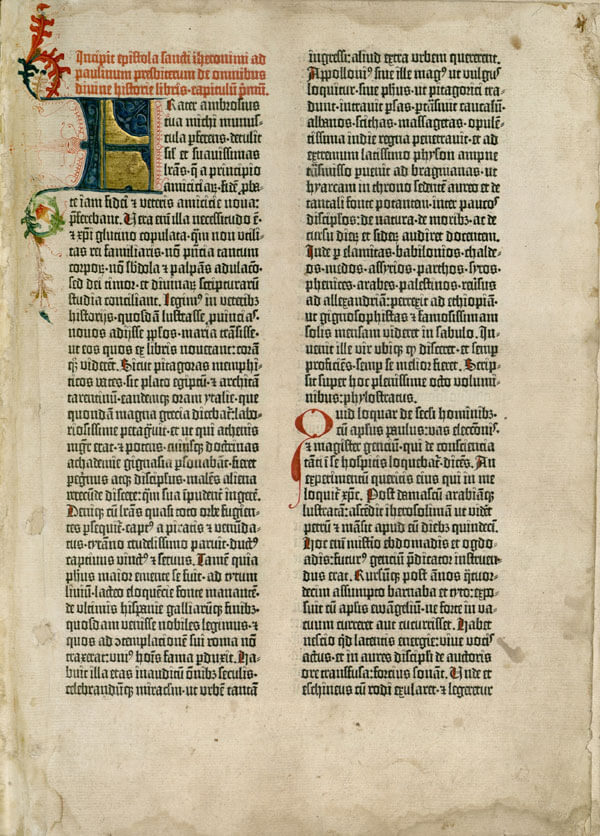 Incipit epistola sancti iheronimi ad
paulinum presbiterum de omnibus
divine historie libris· capitulū pmū·
Frater ambrosius
tua michi munus-
cula pferens· detulit
sil et suavissimas
lrās· q̄ a principio
amiciciaȝ· fidē pba-
te iam fidei et veteris amicicie nova:
pferebant. Vera em̄ illa necessitudo ē·
et xp̄i glutino copulata· qm̄ non utili-
tas rei familiaris· nō p̄ncia tantum
corpoꝝ· nō sbdola et palpās adulacō·
sed dei timor· et divinaꝝ scripturarū
studia conciliant. Legim⁹ in veteribꝫ
historijs· quosdā lustrasse puincias·
novos adijsse pplos· maria trāsisse·
ut eos quos ex libris noverant: corā
qꝫ viderēt. Sicut pitagoras memphi-
ticos vates· sic plato egiptū· et architā
tarentinū· eandemqꝫ oram ytalie· que
quondā magna grecia dicebat᷑: labo-
riosissime pagravit· et ut qui athenis
mgr̄ erat· et potens· cuiusqꝫ doctrinas
achademie gignasia psonabāt· fieret
pegrin⁹ atqꝫ discipulus· malēs aliena
verecūde discere: qm̄ sua īpudent᷑ ingerē.
Deniqꝫ cū lrās quasi toto orbe fugien-
tes psequit᷑· capt⁹ a piratis et venūda-
tus· tyrāno crudelissimo paruit· duct⁹
captivus vinct⁹ et servus. Tamē quia
phūs maior emente se fuit· ad tytum
liviū· lacteo eloquēcie fonte manantē·
de ultimis hispanie galliarūqꝫ finibꝫ·
quosdam venisse nobiles legimus· et
quos ad ꝯtemplacionē sui roma nō
traxerat: uni⁹ hoīs fama pduxit. Ha-
buit illa etas inauditū oīnibꝫ seculis·
celebrandūqꝫ miraclm· ut urbē tantā
ingressi: aliud extra urbem quererent.
Appolloni⁹ sive ille mag⁹ ut vulgus
loquitur· sive phūs· ut pitagorici tra-
dunt· intravit psas· ptrāsivit caucasū·
albanos· scithas· massagetas· opulē-
tissima indie regna penetravit· et ad
extremum latissimo physon ampne
trāsmisso puenit ad bragmanas· ut
hyarcam in throno sedentē aureo et de
tantali fonte potantem· inter paucos
discipulos: de natura· de moribꝫ· ac de
cursu dieꝝ et sideꝝ audiret docentem.
Inde p elamitas· babilonios· chalde-
os· medos· assyrios· parthos· syros·
phenices· arabes· palestinos· reversus
ad allexandriā: perrexit ad ethiopiā·
ut gignosophistas et famosissimam
solis mensam videret in sabulo. In-
venit ille vir ubiqꝫ qȝ disceret· et semp
proficiēs· semp se melior fieret. Scrip-
sit super hoc plenissime octo volumi-
nibus: phylostratus.
Quid loquar de secli hominibꝫ·
cū apl̄us paulus: vas electōnis·
et magister gentiū· qui de consciencia
tāti ī se hospitis loquebat᷑· dicēs. An
experimentū queritis eius qui in me
loquit᷑ xp̄c. Post damascū arabiāqꝫ
lustratā: ascēdit iherosolimā ut vidēt
petrū· et māsit apud eū diebꝫ quindecī.
Hoc em̄ misterio ebdomadis et ogdo-
adis: futur⁹ genciū pdicator instruen-
dus erat. Rursūqꝫ post ānos q̄tuor-
decim assumpto barnaba et tyto: expo-
suit cū apl̄is ewāgeliū· ne forte in va-
cuum curreret aut cucurrisset. Habet
nescio qd latentis energie: vive vocis
actus· et in aures discipuli de auctoris
ore transfusa: fortius sonat. Unde et
eschineus cū rodi exularet· et legeretur